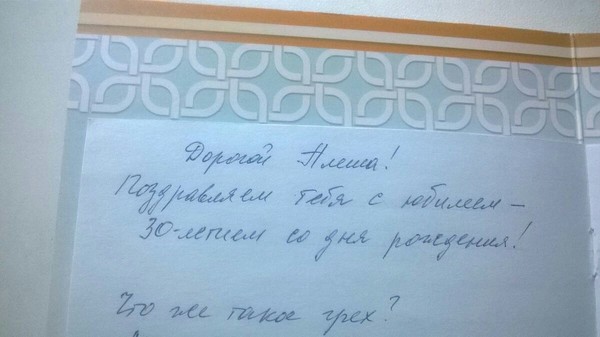 Дорогой Алеша!
Поздравляем тебя с юбилеем -
30-летием со дня рождения!
Что же такое грех?